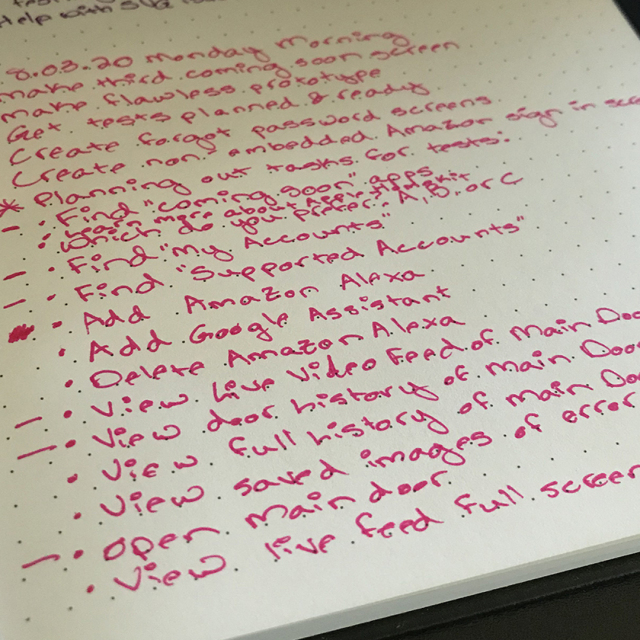 Help with SVG
8.03.20 Monday Morning
make third coming soon screen
make flawless prototype
Get tests planned & ready
Create forgot password screens
Create non embedded Amazon sign in
* Planning out tasks for tests:
- • Find "coming soon" apps
• Learn more about Apple HomeKit
• Which do you prefer? A, B, or C
- • Find "My Accounts"
- • Find "Supported Accounts"
• Add Amazon Alexa
• Add Google Assistant
• Delete Amazon Alexa
- • View Live Video Feed of Main Doo
- • View door history of main Doo
• View full history of main Do
• View saved images of error
- • Open main door
• View live feed full screen